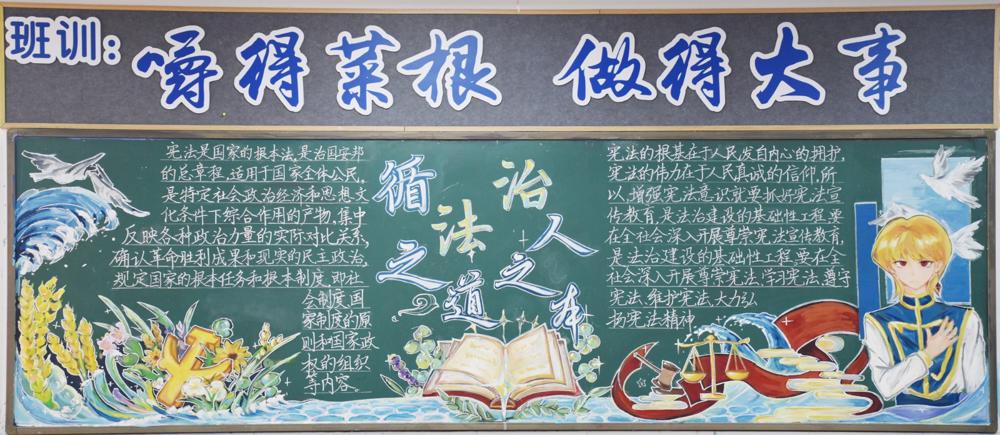 班训:
嚼得菜根 做得大事
宪法是国家的根本法,是治国安邦
的总章程,适用于国家全体公民,
是特定社会政治经济和思想文
化条件下综合作用的产物,集中
反映各种政治力量的实际对比关系,
确认革命胜利成果和现实的民主政治,
规定国家的根本任务和根本制度,即社
会制度、国
家制度的原
则和国家政
权的组织
等内容.
循法之道
治人之本
宪法的根基在于人民发自内心的拥护,
宪法的伟力在于人民真诚的信仰,所
以,增强宪法意识就要抓好宪法宣
传教育,是法治建设的基础性工程,要
在全社会深入开展尊崇宪法宣传教育,
是法治建设的基础性工程,要在全
社会深入开展尊崇宪法、学习宪法、遵守
宪法、维护宪法、大力弘
扬宪法精神